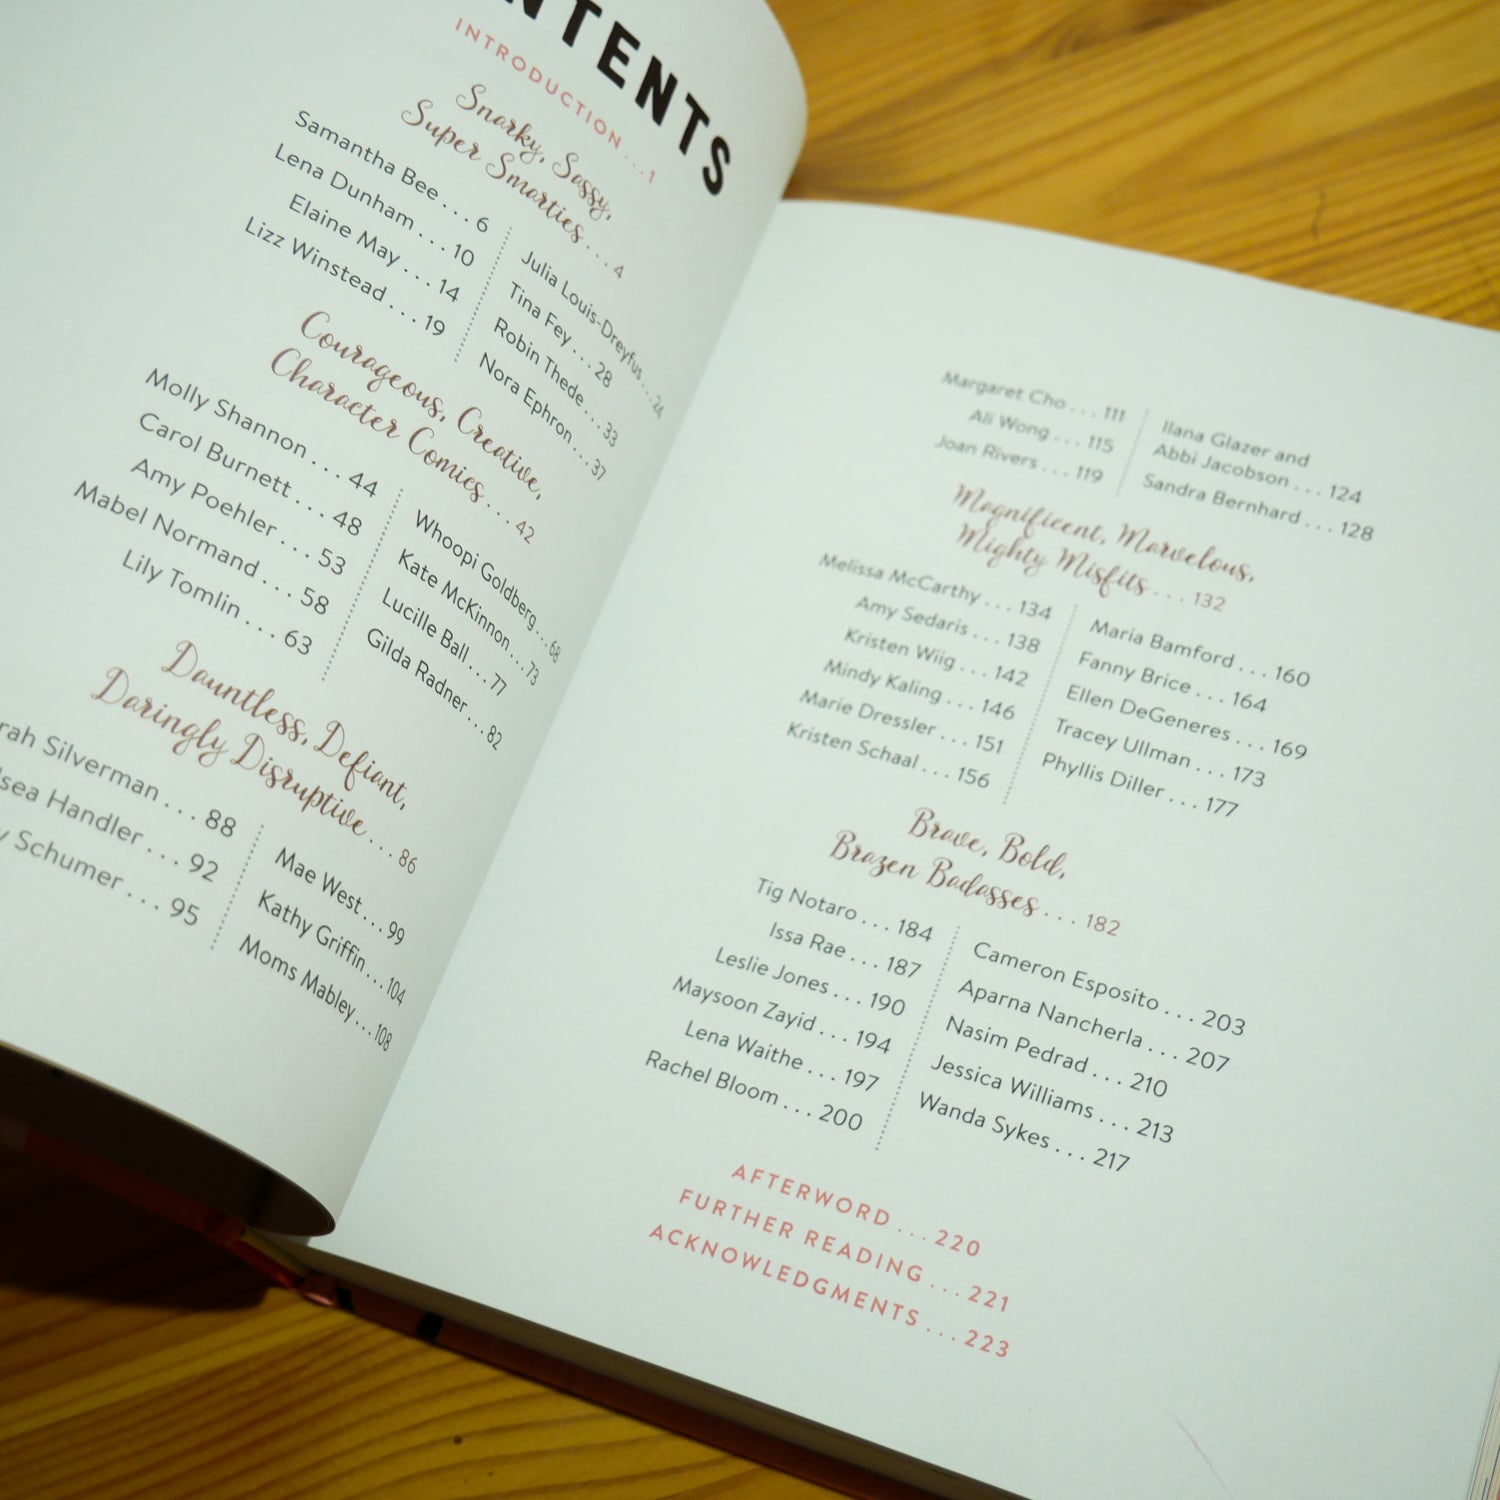 NTENTS
INTRODUCTION ... 1
Snarky, Sassy,
Super Smarties ... 4
Samantha Bee ... 6
Lena Dunham ... 10
Elaine May ... 14
Lizz Winstead ... 19
Julia Louis-Dreyfus ... 24
Tina Fey ... 28
Robin Thede ... 33
Nora Ephron ... 37
Courageous, Creative,
Character Comics ... 42
Molly Shannon ... 44
Carol Burnett ... 48
Amy Poehler ... 53
Mabel Normand ... 58
Lily Tomlin ... 63
Whoopi Goldberg ... 68
Kate McKinnon ... 73
Lucille Ball ... 77
Gilda Radner ... 82
Dauntless, Defiant,
Daringly Disruptive ... 86
rah Silverman ... 88
lsea Handler ... 92
y Schumer ... 95
Mae West ... 99
Kathy Griffin ... 104
Moms Mabley ... 108
Margaret Cho ... 111
Ali Wong ... 115
Joan Rivers ... 119
Ilana Glazer and
Abbi Jacobson ... 124
Sandra Bernhard ... 128
Magnificent, Marvelous,
Mighty Misfits ... 132
Melissa McCarthy ... 134
Amy Sedaris ... 138
Kristen Wiig ... 142
Mindy Kaling ... 146
Marie Dressler ... 151
Kristen Schaal ... 156
Maria Bamford ... 160
Fanny Brice ... 164
Ellen DeGeneres ... 169
Tracey Ullman ... 173
Phyllis Diller ... 177
Brave, Bold,
Brazen Badasses ... 182
Tig Notaro ... 184
Issa Rae ... 187
Leslie Jones ... 190
Maysoon Zayid ... 194
Lena Waithe ... 197
Rachel Bloom ... 200
Cameron Esposito ... 203
Aparna Nancherla ... 207
Nasim Pedrad ... 210
Jessica Williams ... 213
Wanda Sykes ... 217
AFTERWORD ... 220
FURTHER READING ... 221
ACKNOWLEDGMENTS ... 223